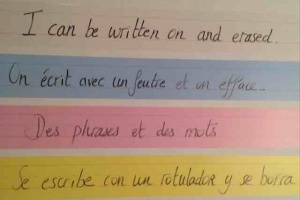 I can be written on and erased.
On écrit avec un feutre et on efface.
Des phrases et des mots
Se escribe con un rotulador y se borra